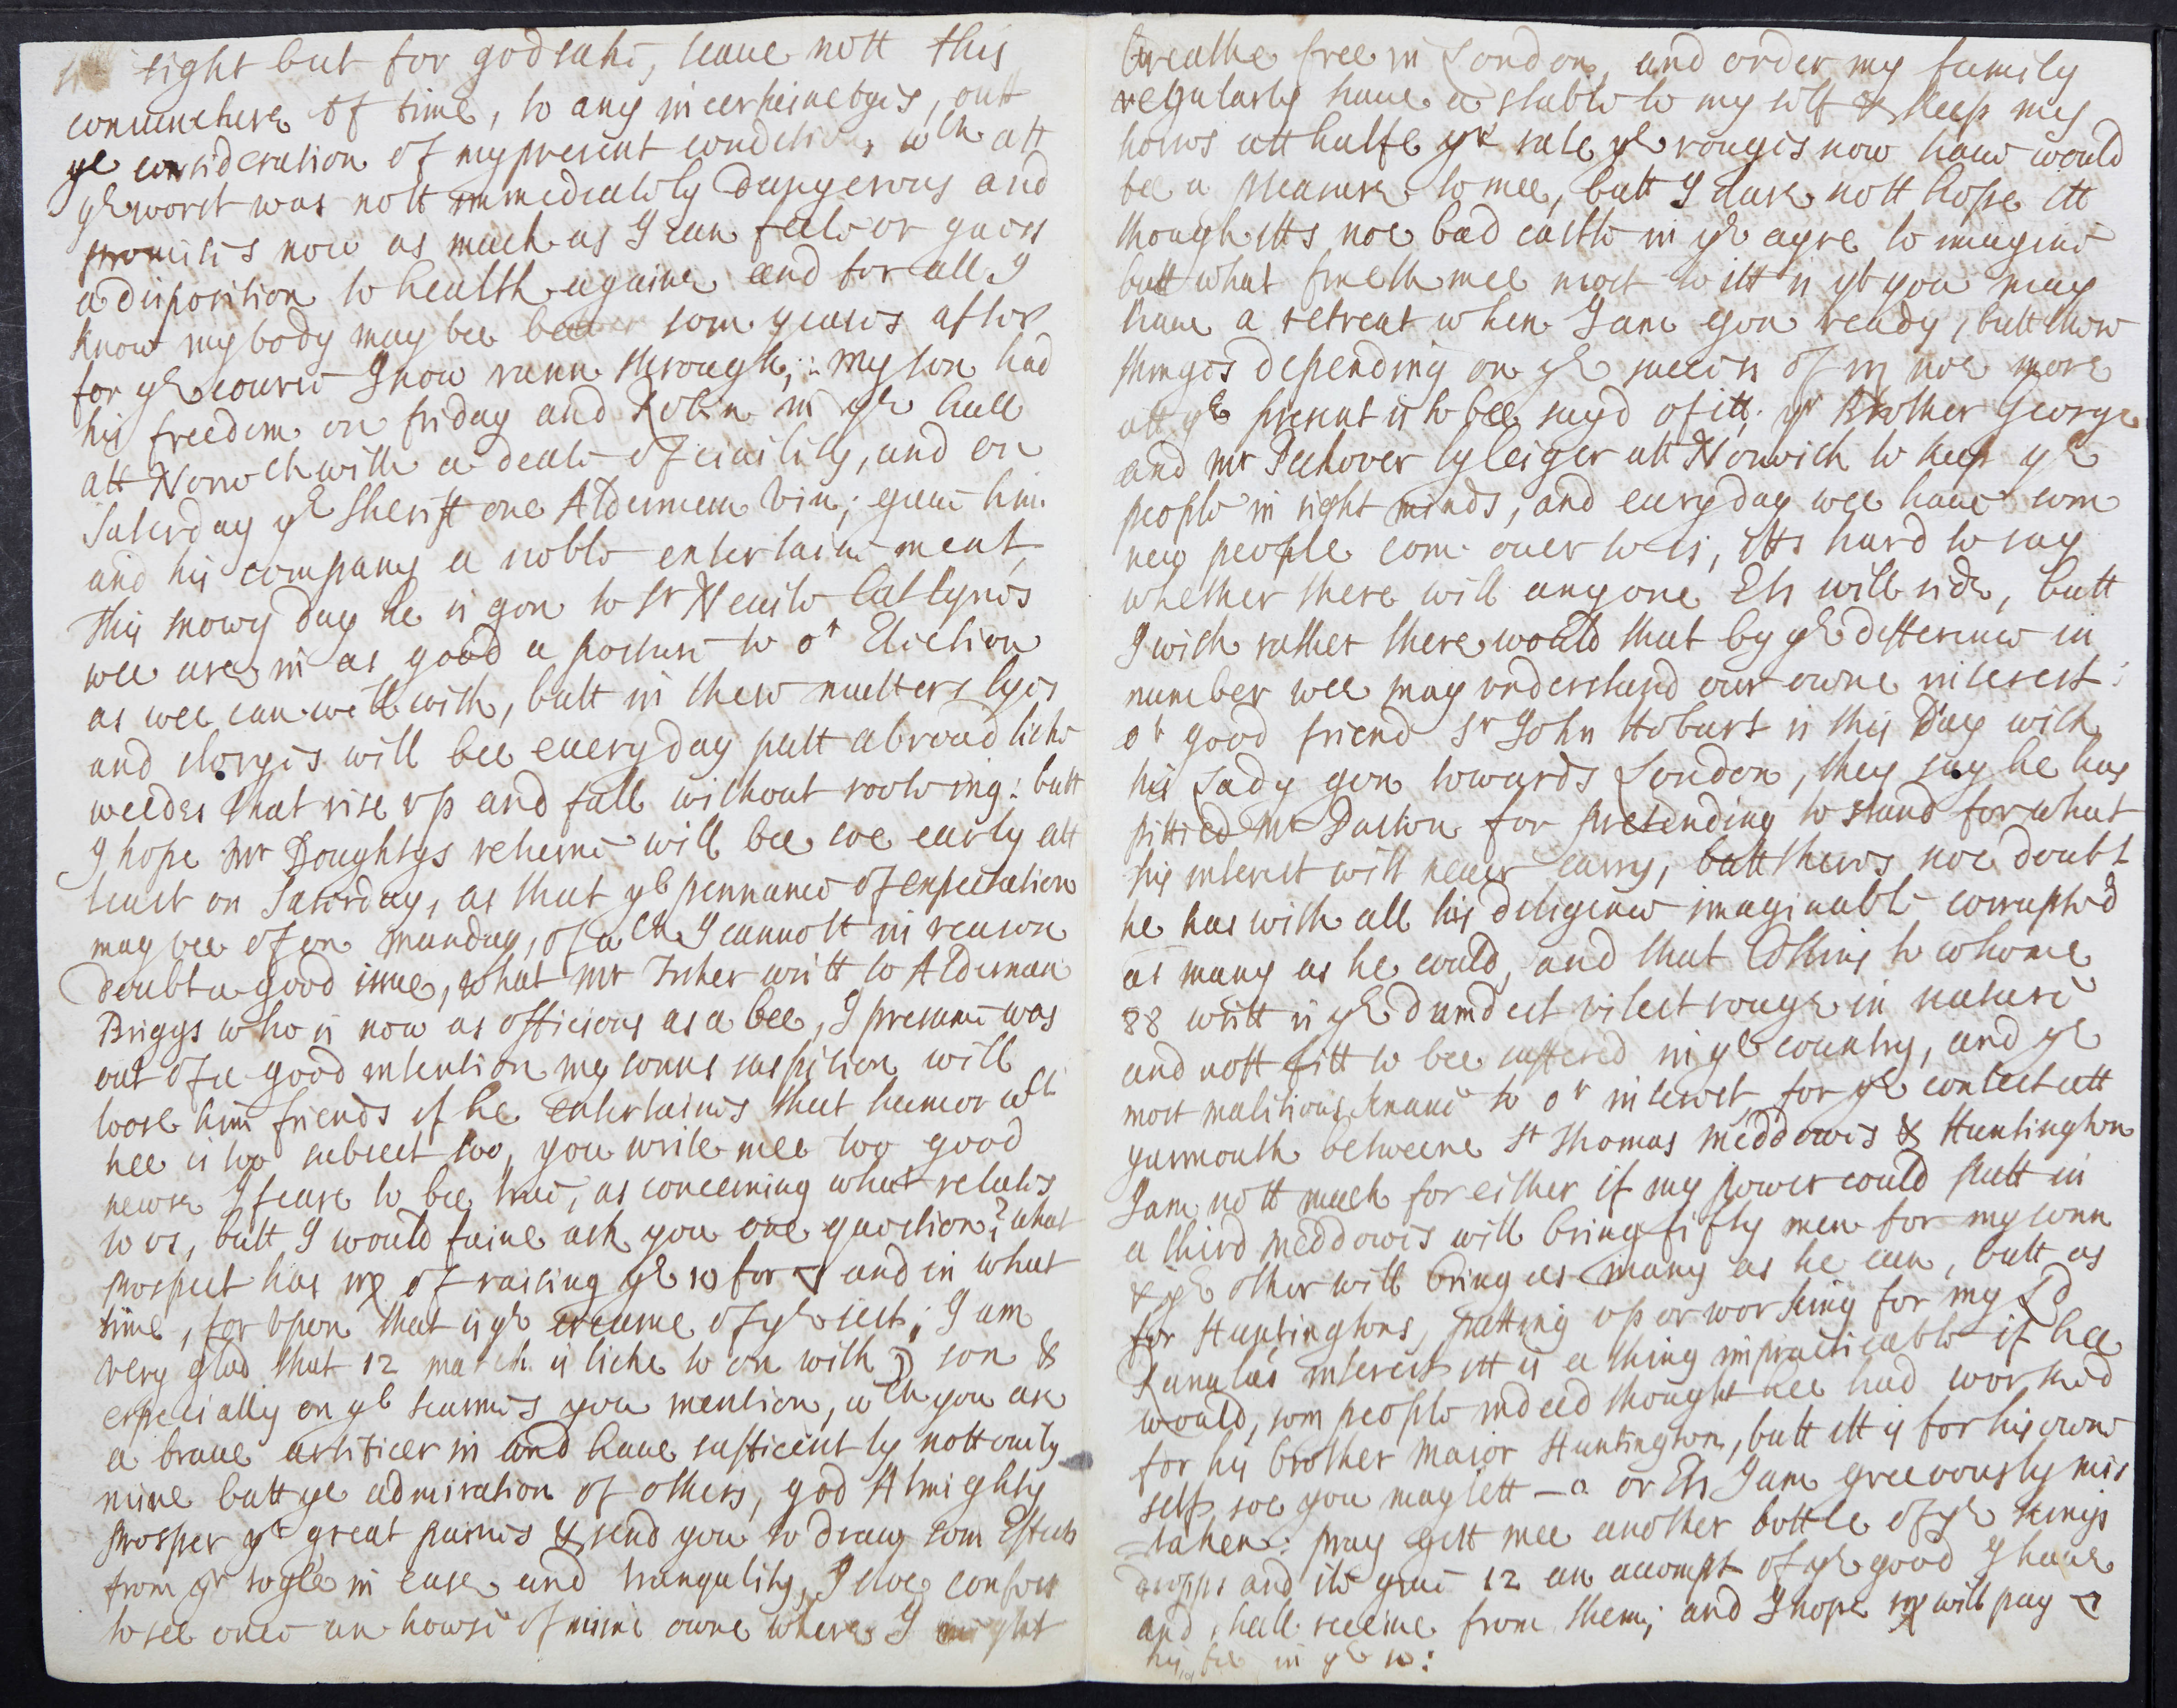 sight but for god sake, leaue nott this
coniuncture of time, to any incertainetyes, outt
ye consideration of my present condition, wch att
ye worst was nott immediatly Dangerous and
promises now as much as I can feele or guess
a disposition to health againe and for all I
know my body may bee better som yeares after
for ye course I now runn through; my son had
his freedom on friday and Robin in ye hall
att Norwch with a deale of ciuility, and on
Saterday ye Sheriff one Alderman Vin; gaue him
and his company a noble entertainement,
this snowy day he is gon to Sr Neuile Catlynes
wee are in as good a posture to or Election
as wee can well wish, butt in these matters lyes
and storyes will bee euery day putt abroad like
weedes that rise vp and fall without rooteing: butt
I hope Mr Doughtys returne will bee soe early att
least on Saterday, as that ye pennance of expectation
may bee of on munday, of wch I cannott in reason
doubt a good issue, what Mr Fisher writt to Alderman
Briggs who is now as officious as a bee, I presume was
out of a good intention my sonns suspition will
loose him friends if he entertaines that humor wch
hee is too subiect too, you write mee too good
newse I feare to bee true, as concerning what relates
to vs, butt I would faine ask you one question? what
prospect has of raising ye 10 for and in what
time, for vpon that is ye creame of ye iest; I am
very glad that 12 match is like to on with son &
especially on ye tearmes you mention, wch you are
a braue artificer in and haue sufficiently nott only
mine butt ye admiration of others, god Almighty
prosper yr great paines & send you to draw som
from yr toyle in ease and tranquility, I doe confess
to see once an howse of mine owne where I might
breathe free in London, and order my family
regularly haue a stable to my self & keep my
horses att halfe ye rate ye rougis now haue would
bee a pleasure to mee, butt I dare nott hope itt
though itts noe bad castle in ye ayre to imagine
butt what mee most to itt is yt you may
haue a retreat when I am gon ready, butt thos
things depending on ye success of noe more
att ye present is to bee sayd of itt; yr Brother George
and Mr Peckover ly leiger att Norwich to keep ye
people in right minds, and euery day wee haue som
new people com ouer to vs, itts hard to say
whether there will any one Els will ride, butt
I wish rather there would that by ye difference in
number wee may vnderstand our owne interest:
or good friend Sr John Hobart is this Day with
his Lady gon towards London, they say he has
pittied Mr Paston for pretending to stand for what
his interest will neuer carry, butt theres noe doubt
he has with all his diligence imaginable corrupted
as many as he could, and that Collins to whome
88 writt is ye damdest vilest rouge in nature
and nott fitt to bee suffered in ye country, and ye
most malitious knaue to or interest, for ye contest att
yarmouth betweene Sr Thomas Meddowes & Huntington
I am nott much for either if my power could putt in
a third meddowes will bring fifty men for my sonn
& ye other will bring as many as he can, butt as
for Huntingtons, putting vp or working for my Ld
interest itt is a thing impracticable if hee
would, som people indeed thought hee had worked
for his brother Maior Huntington, butt itt is for his owne
self soe you may lett or Els I am greeuously mis
taken: pray gett mee another bottle of ye kings
dropps and ile giue 12 an accompt of ye good I haue
and shall receiue from them; and I hope will pay
his in ye 10: